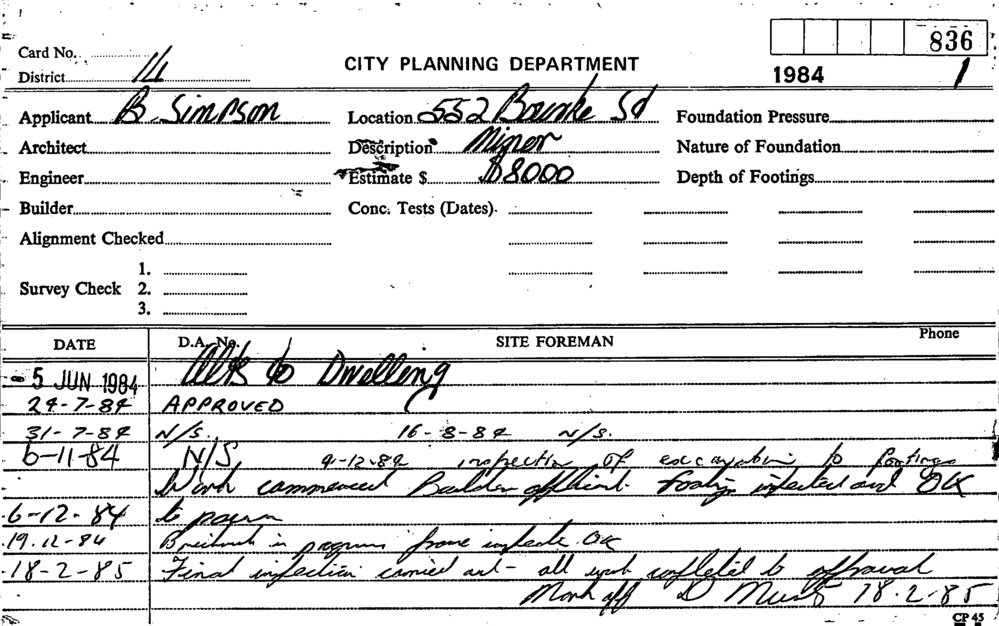 836
Card No.
District 14
CITY PLANNING DEPARTMENT
1984 1
Applicant B. Simpson Location 552 Bourke St Foundation Pressure
Architect Description Minor Nature of Foundation
Engineer Estimate $ $8000 Depth of Footings
Builder Conc. Tests (Dates)
Alignment Checked
1.
Survey Check 2.
3.
DATE D.A. No. SITE FOREMAN Phone
- 5 JUN 1984 Alts to Dwelling
24-7-84 APPROVED
31-7-84 N/S. 16-8-84 N/S.
6-11-84 N/S 4-12-84 inspection of excavation to footings
Work commenced Builder Footings inspected and OK
6-12-84 to pour
19.12-84 Brickwork in progress frame OK
18-2-85 Final inspection carried out - all work completed to approval
Mark off D 18.2.85
CP 45